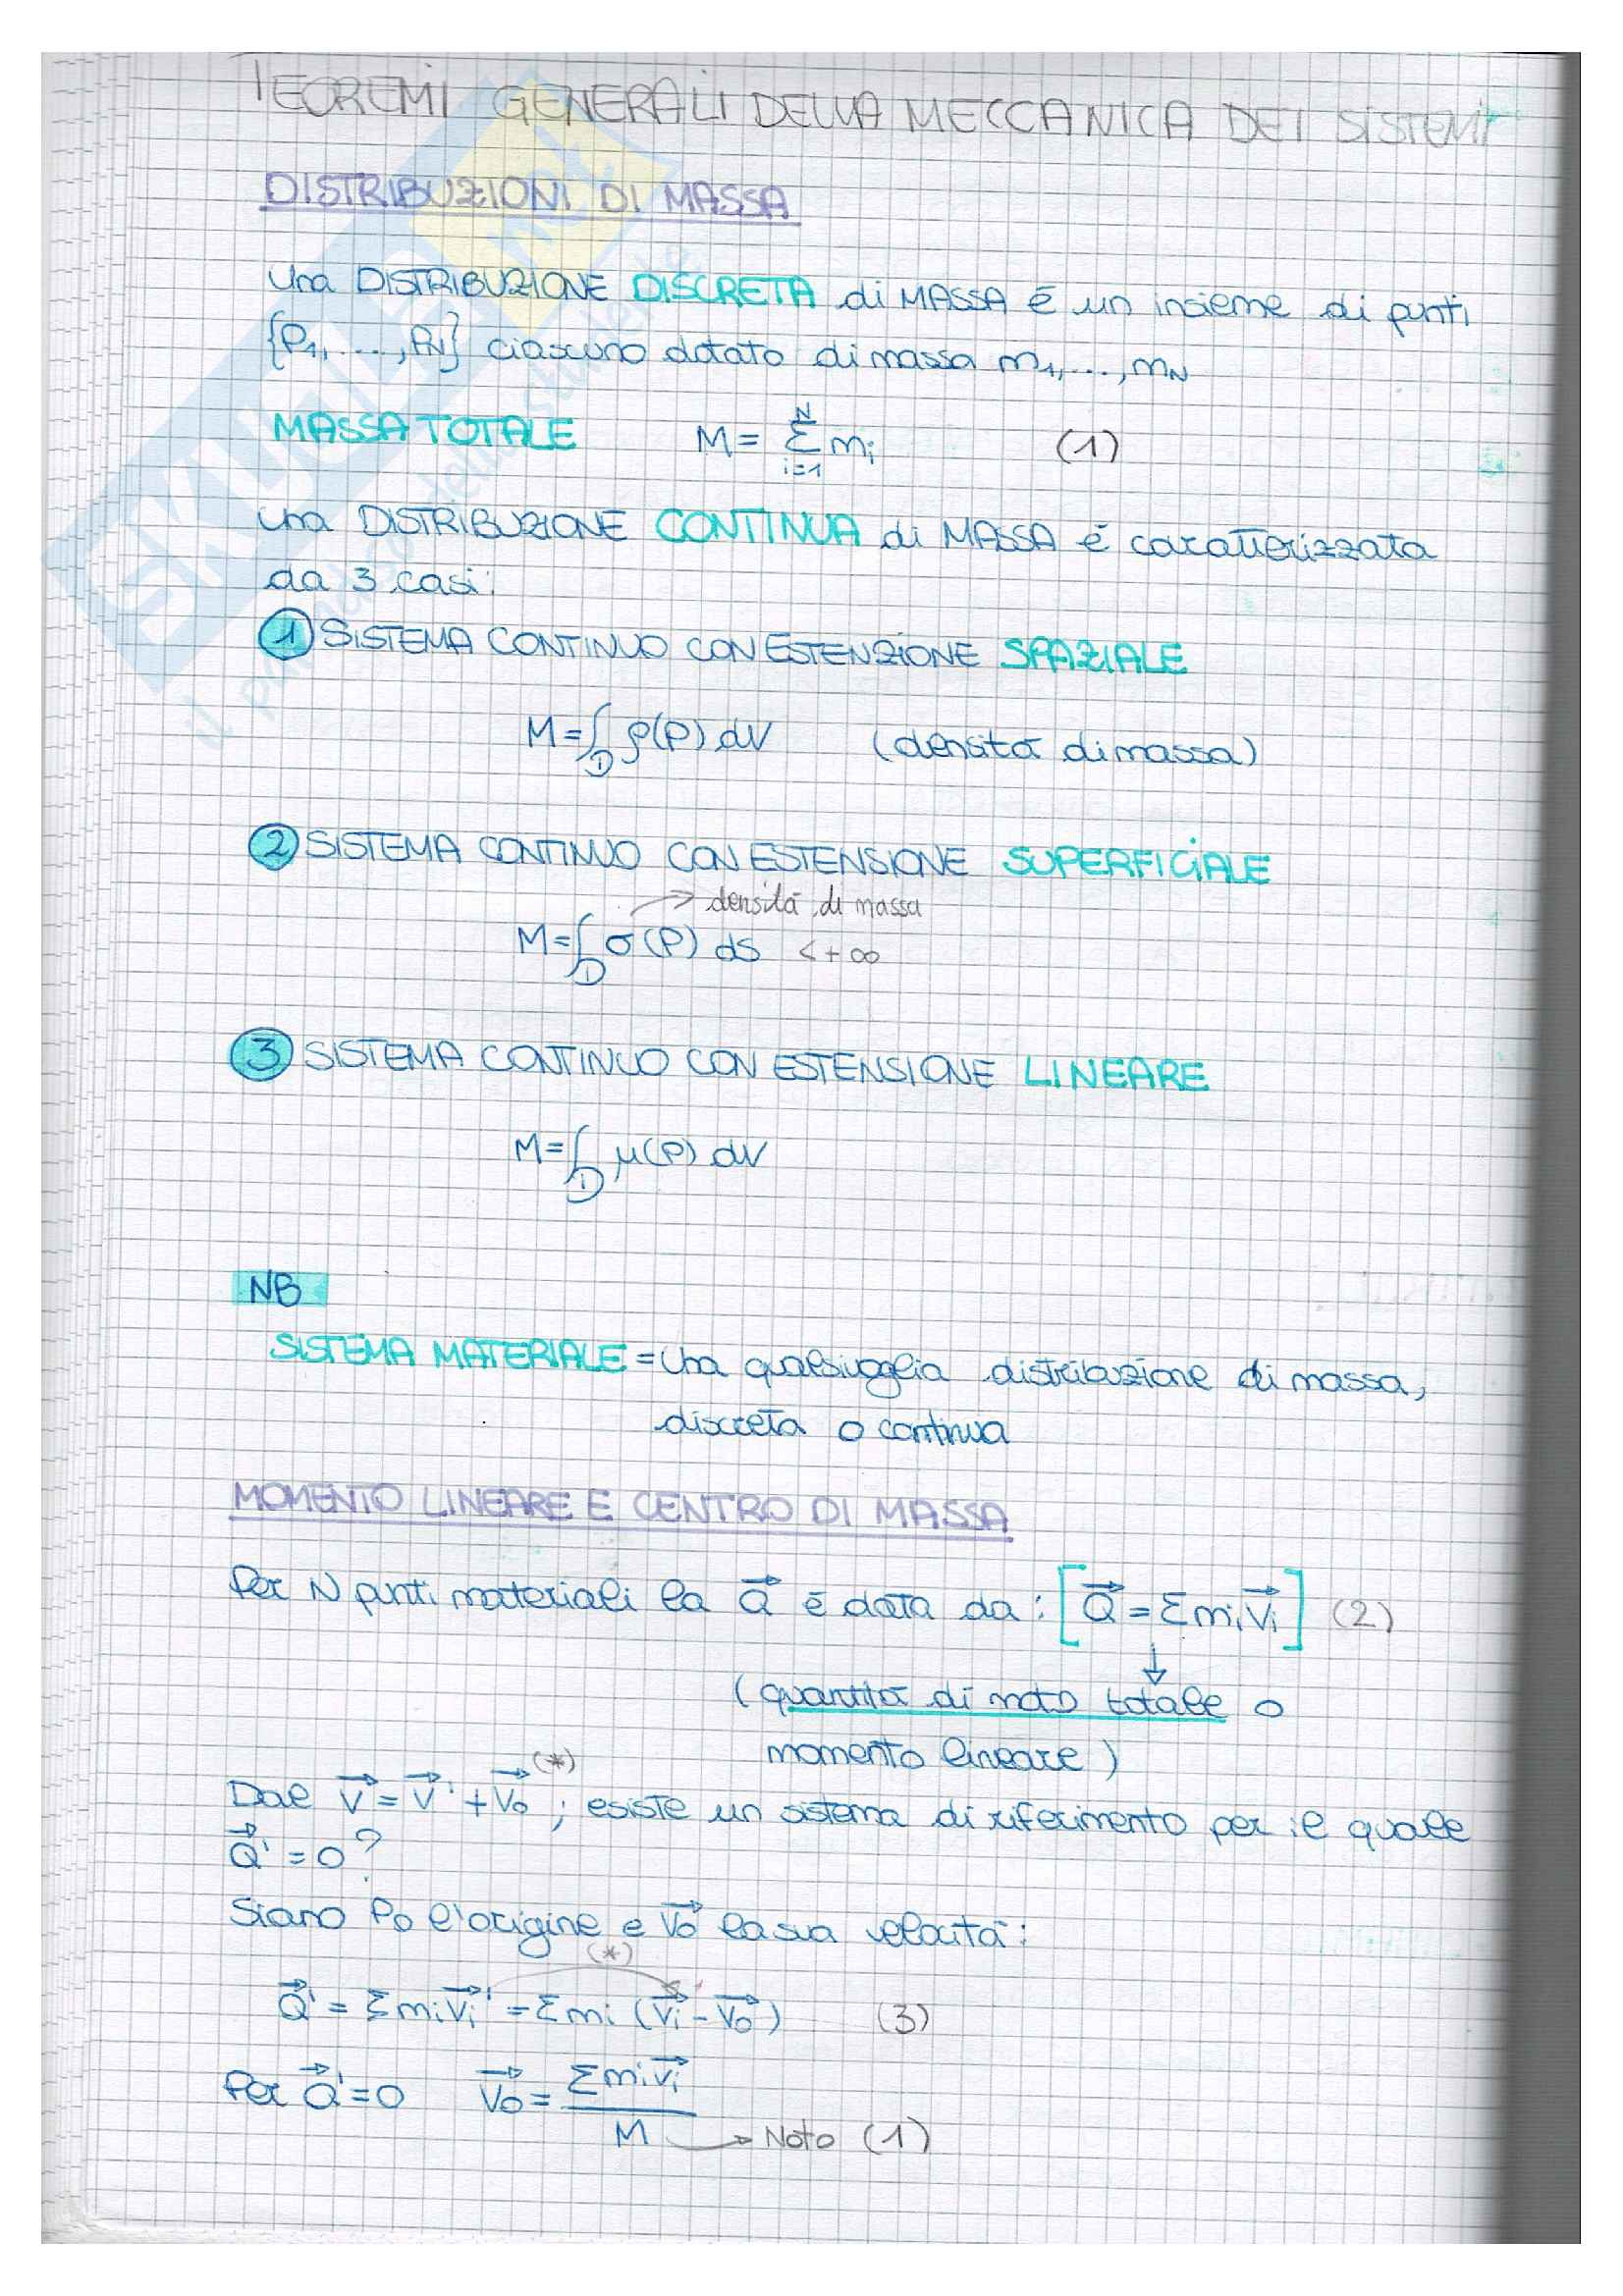 TEOREMI GENERALI DELLA MECCANICA DEI SISTEMI
DISTRIBUZIONI DI MASSA
Una DISTRIBUZIONE DISCRETA di MASSA è un insieme di punti
{P1,...,PN} ciascuno dotato di massa m1,...,mN
MASSA TOTALE M = Σ_{i=1}^{N} mi (1)
Una DISTRIBUZIONE CONTINUA di MASSA è caratterizzata
da 3 casi:
1 SISTEMA CONTINUO CON ESTENZIONE SPAZIALE
M = ∫_D ρ(P) dV (densità di massa)
2 SISTEMA CONTINUO CON ESTENSIONE SUPERFICIALE
→ densità di massa
M = ∫_D σ(P) dS < +∞
3 SISTEMA CONTINUO CON ESTENSIONE LINEARE
M = ∫_D μ(P) dV
NB
SISTEMA MATERIALE = Una qualsivoglia distribuzione di massa,
discreta o continua
MOMENTO LINEARE E CENTRO DI MASSA
Per N punti materiali la Q⃗ è data da: [Q⃗ = Σ mi v⃗i] (2)
↓
(quantità di moto totale o
momento lineare)
Dal v⃗ = v⃗' + v⃗0 (*) ; esiste un sistema di riferimento per il quale
Q⃗' = 0?
Siano P0 l'origine e v⃗0 la sua velocità:
(*)
Q⃗' = Σ mi v⃗i' = Σ mi (v⃗i - v⃗0) (3)
Per Q⃗' = 0 v⃗0 = Σ mi v⃗i / M → Noto (1)
SKUOLA.net
il paradiso dello studente